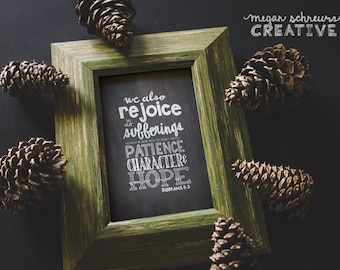 megan schreurs
CREATIVE
we also
rejoice
in our
sufferings
PATIENCE
CHARACTER &
HOPE
ROMANS 5:3